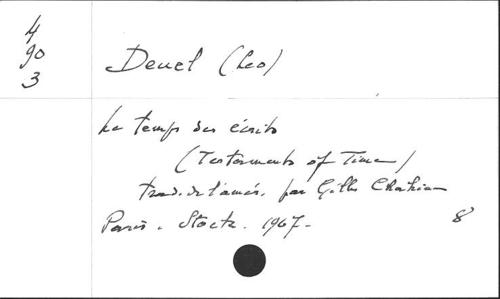 4
90
3
Deuel (Leo)
Le temps des écrits
(Testaments of Time)
trad. de l'amér. par Gilles
Paris. Stock. 1967.
8°